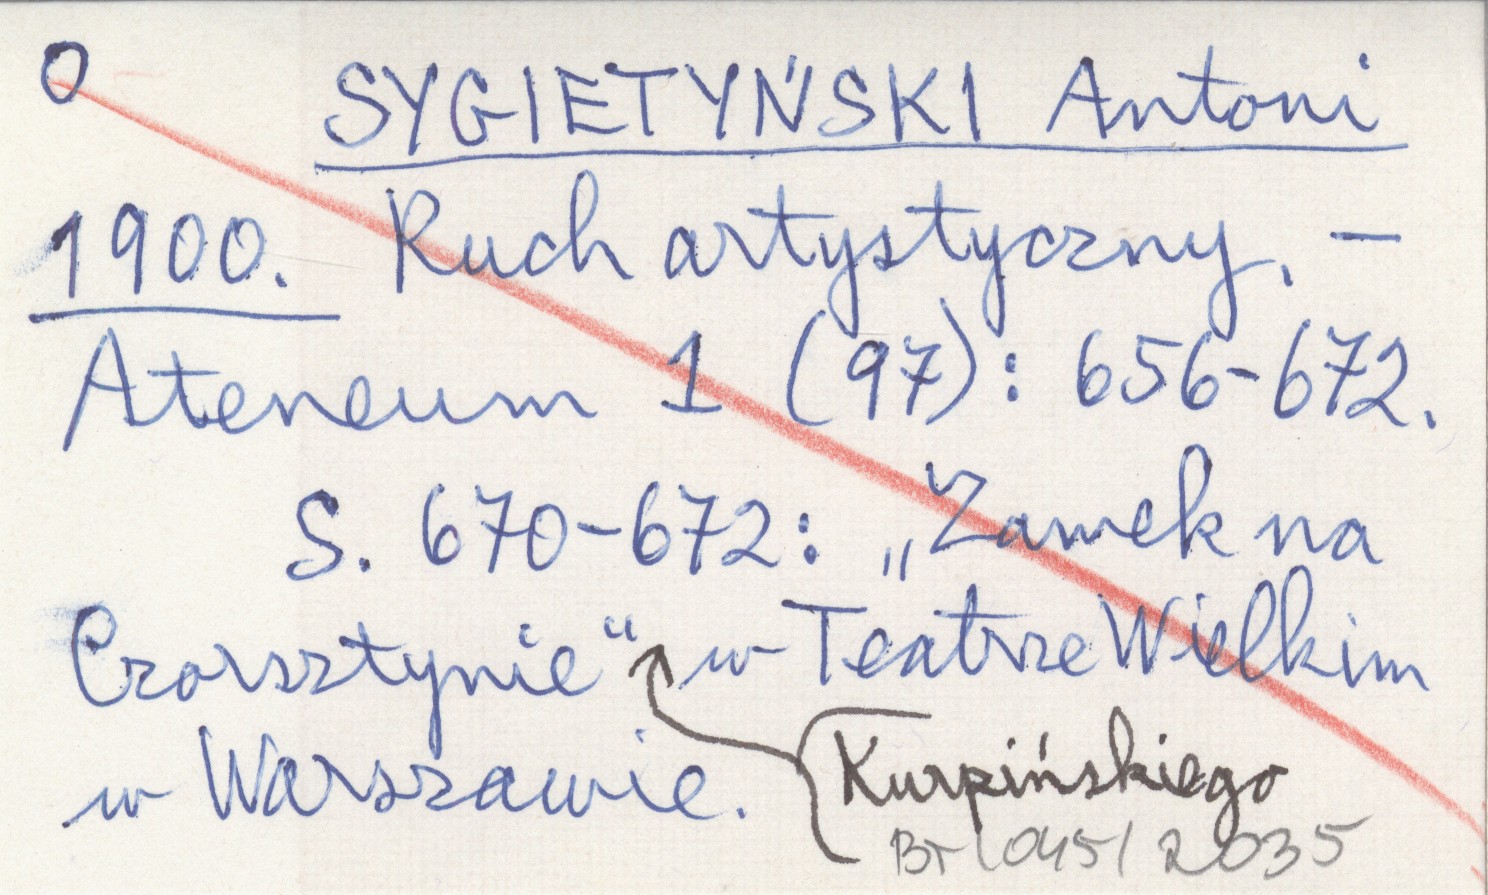 O SYGIETYŃSKI Antoni
1900. Ruch artystyczny. –
Ateneum 1 (97): 656-672.
S. 670-672: „Zamek na
Czorsztynie“ w Teatrze Wielkim
w Warszawie.
Kurpińskiego
BT/045/2035